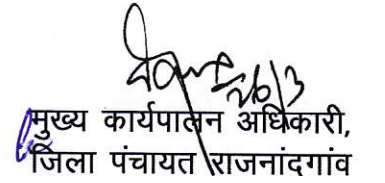 26/3
मुख्य कार्यपालन अधिकारी,
जिला पंचायत राजनांदगांव